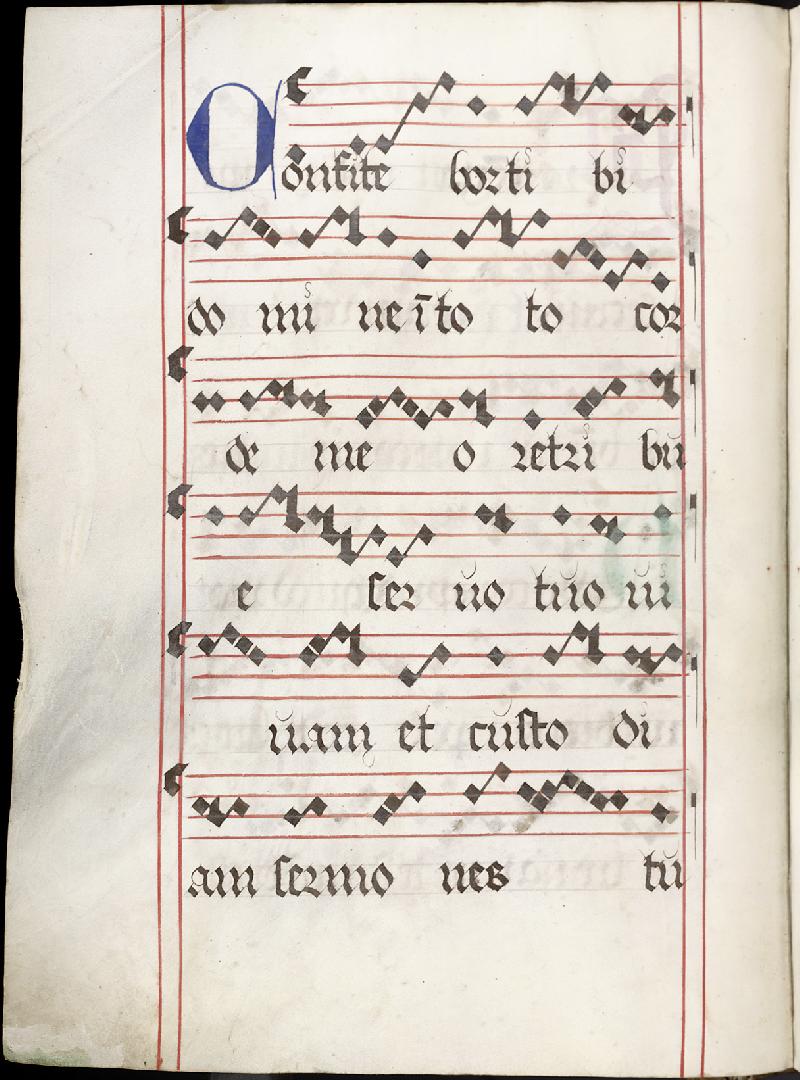 Confite bor ti bi
do mi ne ī to to cor
de me o retri bu
e ser uo tuo ui
uam et custo di
am sermo nes tu